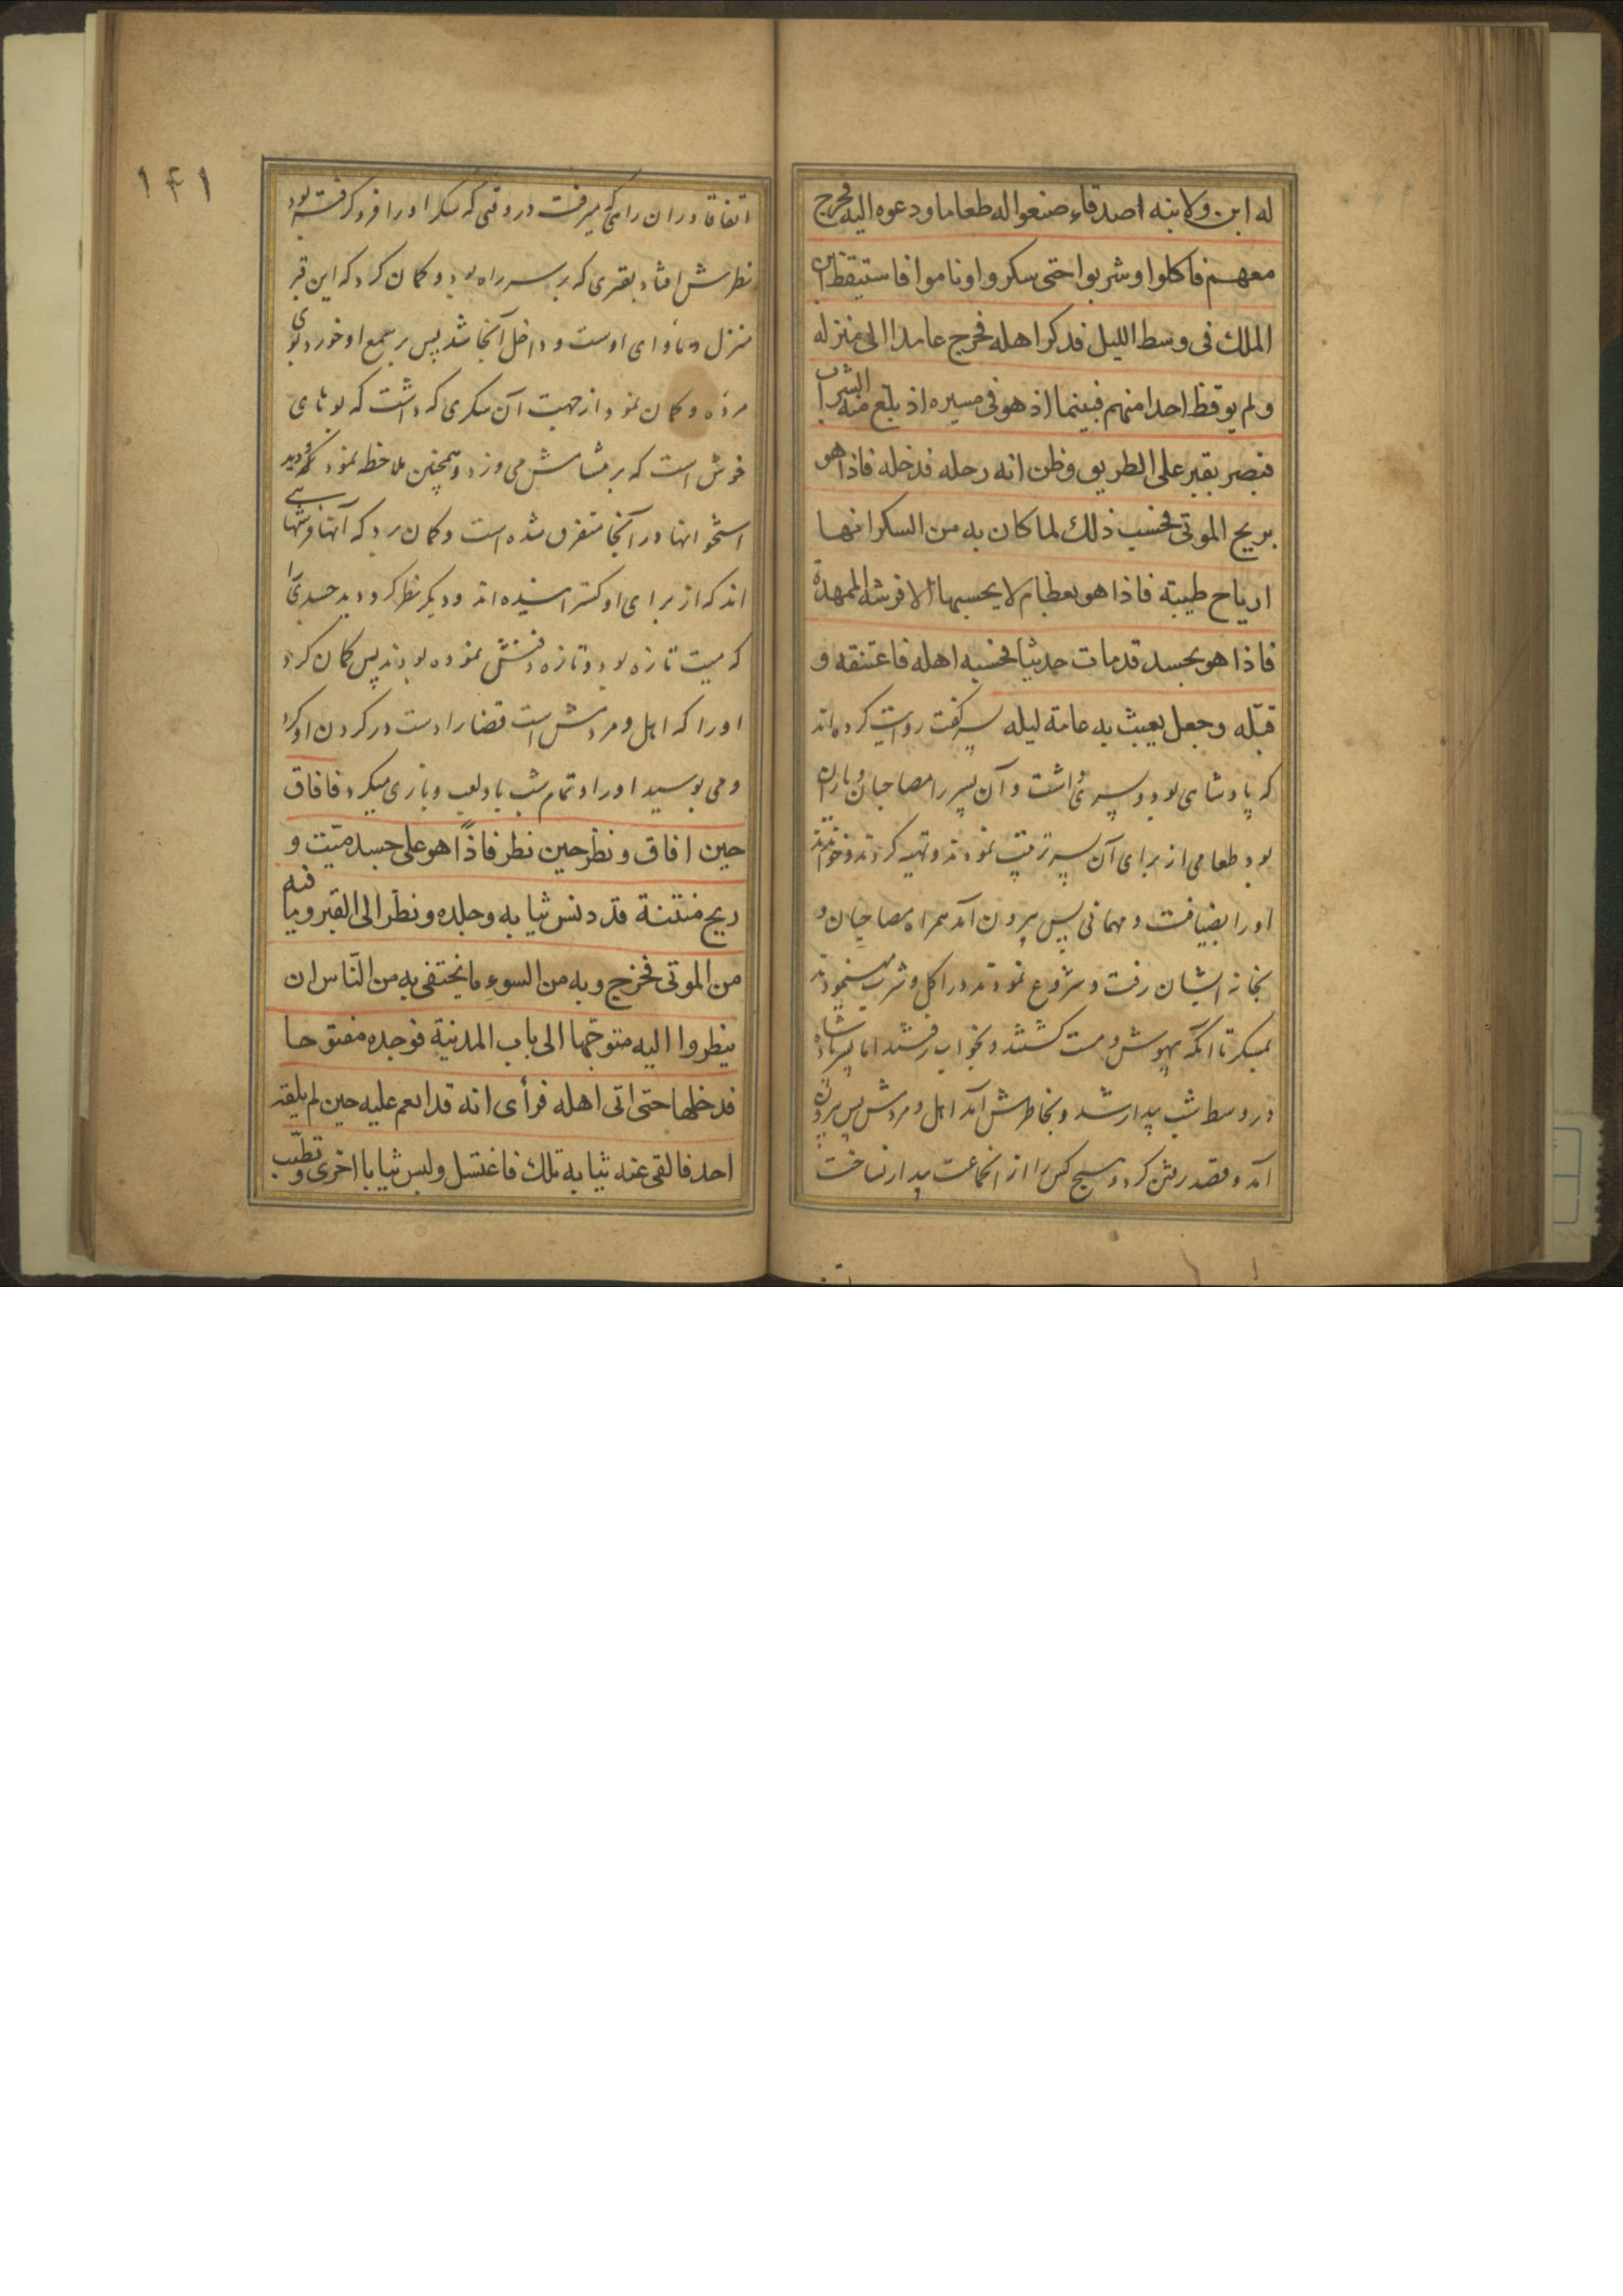 له ابن ولابنه اصدقاء صنعوا له طعاما ودعوه اليه فخرج
معهم فاكلوا وشربوا حتى سكروا وناموا فاستيقظ ابن
الملك فى وسط الليل فذكر اهله فخرج عامدا الى منزله
ولم يوقظ احدا منهم فبينما اذ هو فى مسيره اذ بلغ منه الشراب
فبصر بقبر على الطريق وظن انه رحله فدخله فاذا هو
بريح الموتى فحسب ذلك لما كان به من السكر انها
ارياح طيبة فاذا هو بعظام لا يحسبها الا فرشه الممهدة
فاذا هو بجسد قدمات حديثا فحسبه اهله فاعتنقه و
قبّله وجعل يعبث به عامة ليله پسر گفت روایت کرده‌اند
که پادشاهی بود و پسری داشت و آن پسر را مصاحبان و یاران
بود طعامی از برای آن پسر ترتیب نمودند و تهیه کردند و خواندند
او را بضیافت و مهمانی پس بیرون آمد همراه مصاحبان و
بخانه ایشان رفت و شروع نمودند در اکل و شرب مینمودند
تا آنکه بیهوش و مست گشتند و بخواب رفتند اما پسر پادشاه
در وسط شب بیدار شد و بخاطرش آمد اهل و مردمش پس بیرون
آمد و قصد رفتن کرد و هیچ کس را از انجماعت بیدار نساخت
۱۴۱
اتفاقا در ان راهی که میرفت در وقتی که سکر او را فرو گرفته بود
نظرش افتاد بقبری که بر سر راه بود و گمان کرد که این قبر
منزل و ماوای اوست و داخل آنجا شد پس بر سمع او خورد بوی
مرده و گمان نمود از جهت آن سکری که داشت که بوهای
خوش است که بر مشامش می وزد و همچنین ملاحظه نمود که دید
استخوانها در آنجا متفرق شده است و گمان برد که آنها فرشهایی
اند که از برای او گسترانیده اند و دیگر نظر کرد و دید جسدی را
که میت تازه بود و تازه دفنش نموده بودند پس گمان کرد
او را که اهل و مردمش است قضا را دست در گردن او کرد
و می بوسید او را و تمام شب با او لعب و بازی میکرد فافاق
حين افاق ونظر حين نظر فاذاً هو على جسد ميّت و
ريح منتنة قد دنس ثيابه وجلده ونظر الى القبر وما فيه
من الموتى فخرج وبه من السوء ما يختفى به من النّاس ان
ينظروا اليه متوجّها الى باب المدينة فوجده مفتوحا
فدخلها حتى اتى اهله فرأى انه قد انعم عليه حين لم يلقه
احد فالقى عنه ثيابه تلك فاغتسل ولبس ثيابا اخرى وتطيّب